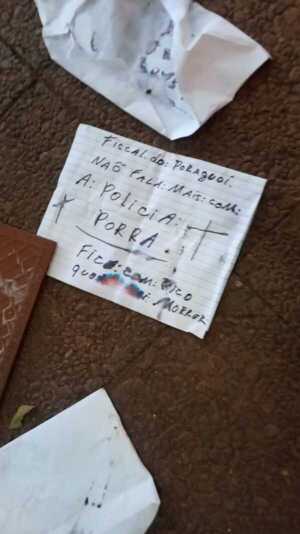 Fiscal do: Poraguai.
NÃO FALA: MAIS: COM:
A: POLICIA:
PORRA.
FICA: COM: BICO
MORRER